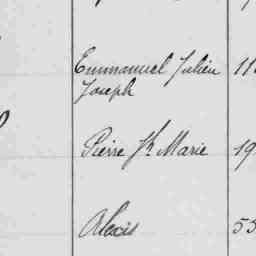 Emmanuel Julien 11
Joseph
Pierre Jh Marie 19
Alexis 55